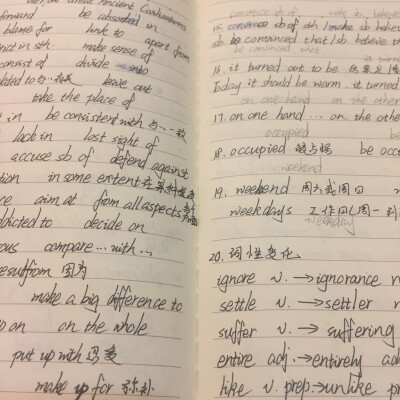 forward be absorbed in
blame for link to apart from
consist of divide into
leave out
take the place of
in be consistent with 与…一致
lack in lost sight of
accuse sb of defend against
in some extent 在某种程度
aim at from all aspects
decide on
compare...with...
result from 因为
make a big difference to
on on the whole
put up with 忍受
make up for 弥补
15. convince sb of sth / make sb believe
sb be convinced that / sb believe th
be convinced that
16. it turned out to be
Today it should be warm. it turned
on one hand on the othe
17. on one hand ... on the othe
occupied
18. occupied be occ
weekend
19. weekend 周六或周日
weekdays 工作日(周一到
weekday
20. 词性变化
ignore v. → ignorance n
settle v. → settler n
suffer v. → suffering
entire adj. → entirely ad
like v. prep → unlike pr